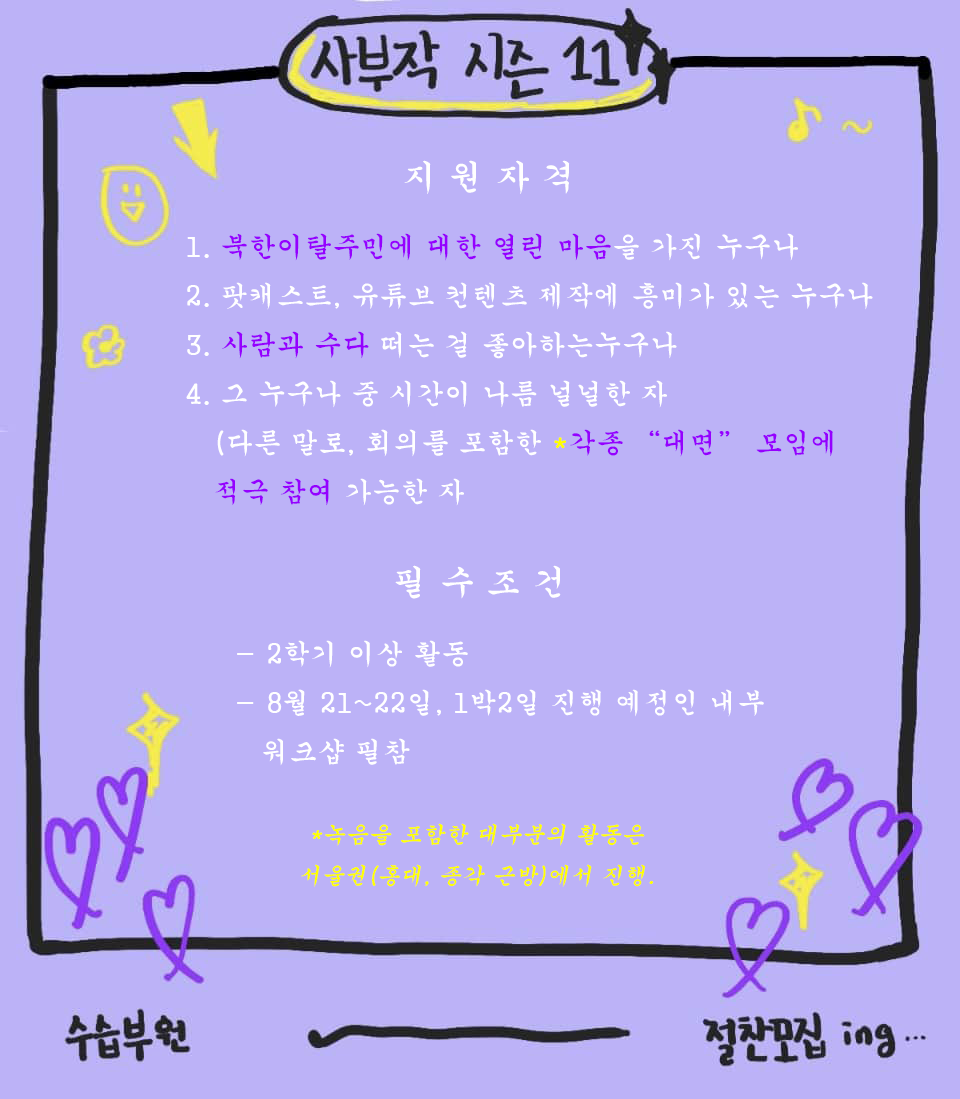 사부작 시즌 11
지원자격
1. 북한이탈주민에 대한 열린 마음을 가진 누구나
2. 팟캐스트, 유튜브 컨텐츠 제작에 흥미가 있는 누구나
3. 사람과 수다 떠는 걸 좋아하는누구나
4. 그 누구나 중 시간이 나름 널널한 자
(다른 말로, 회의를 포함한 *각종 “대면” 모임에
적극 참여 가능한 자
필수조건
- 2학기 이상 활동
- 8월 21~22일, 1박2일 진행 예정인 내부
워크샵 필참
*녹음을 포함한 대부분의 활동은
서울권(홍대, 종각 근방)에서 진행.
수습부원 절찬모집 ing...